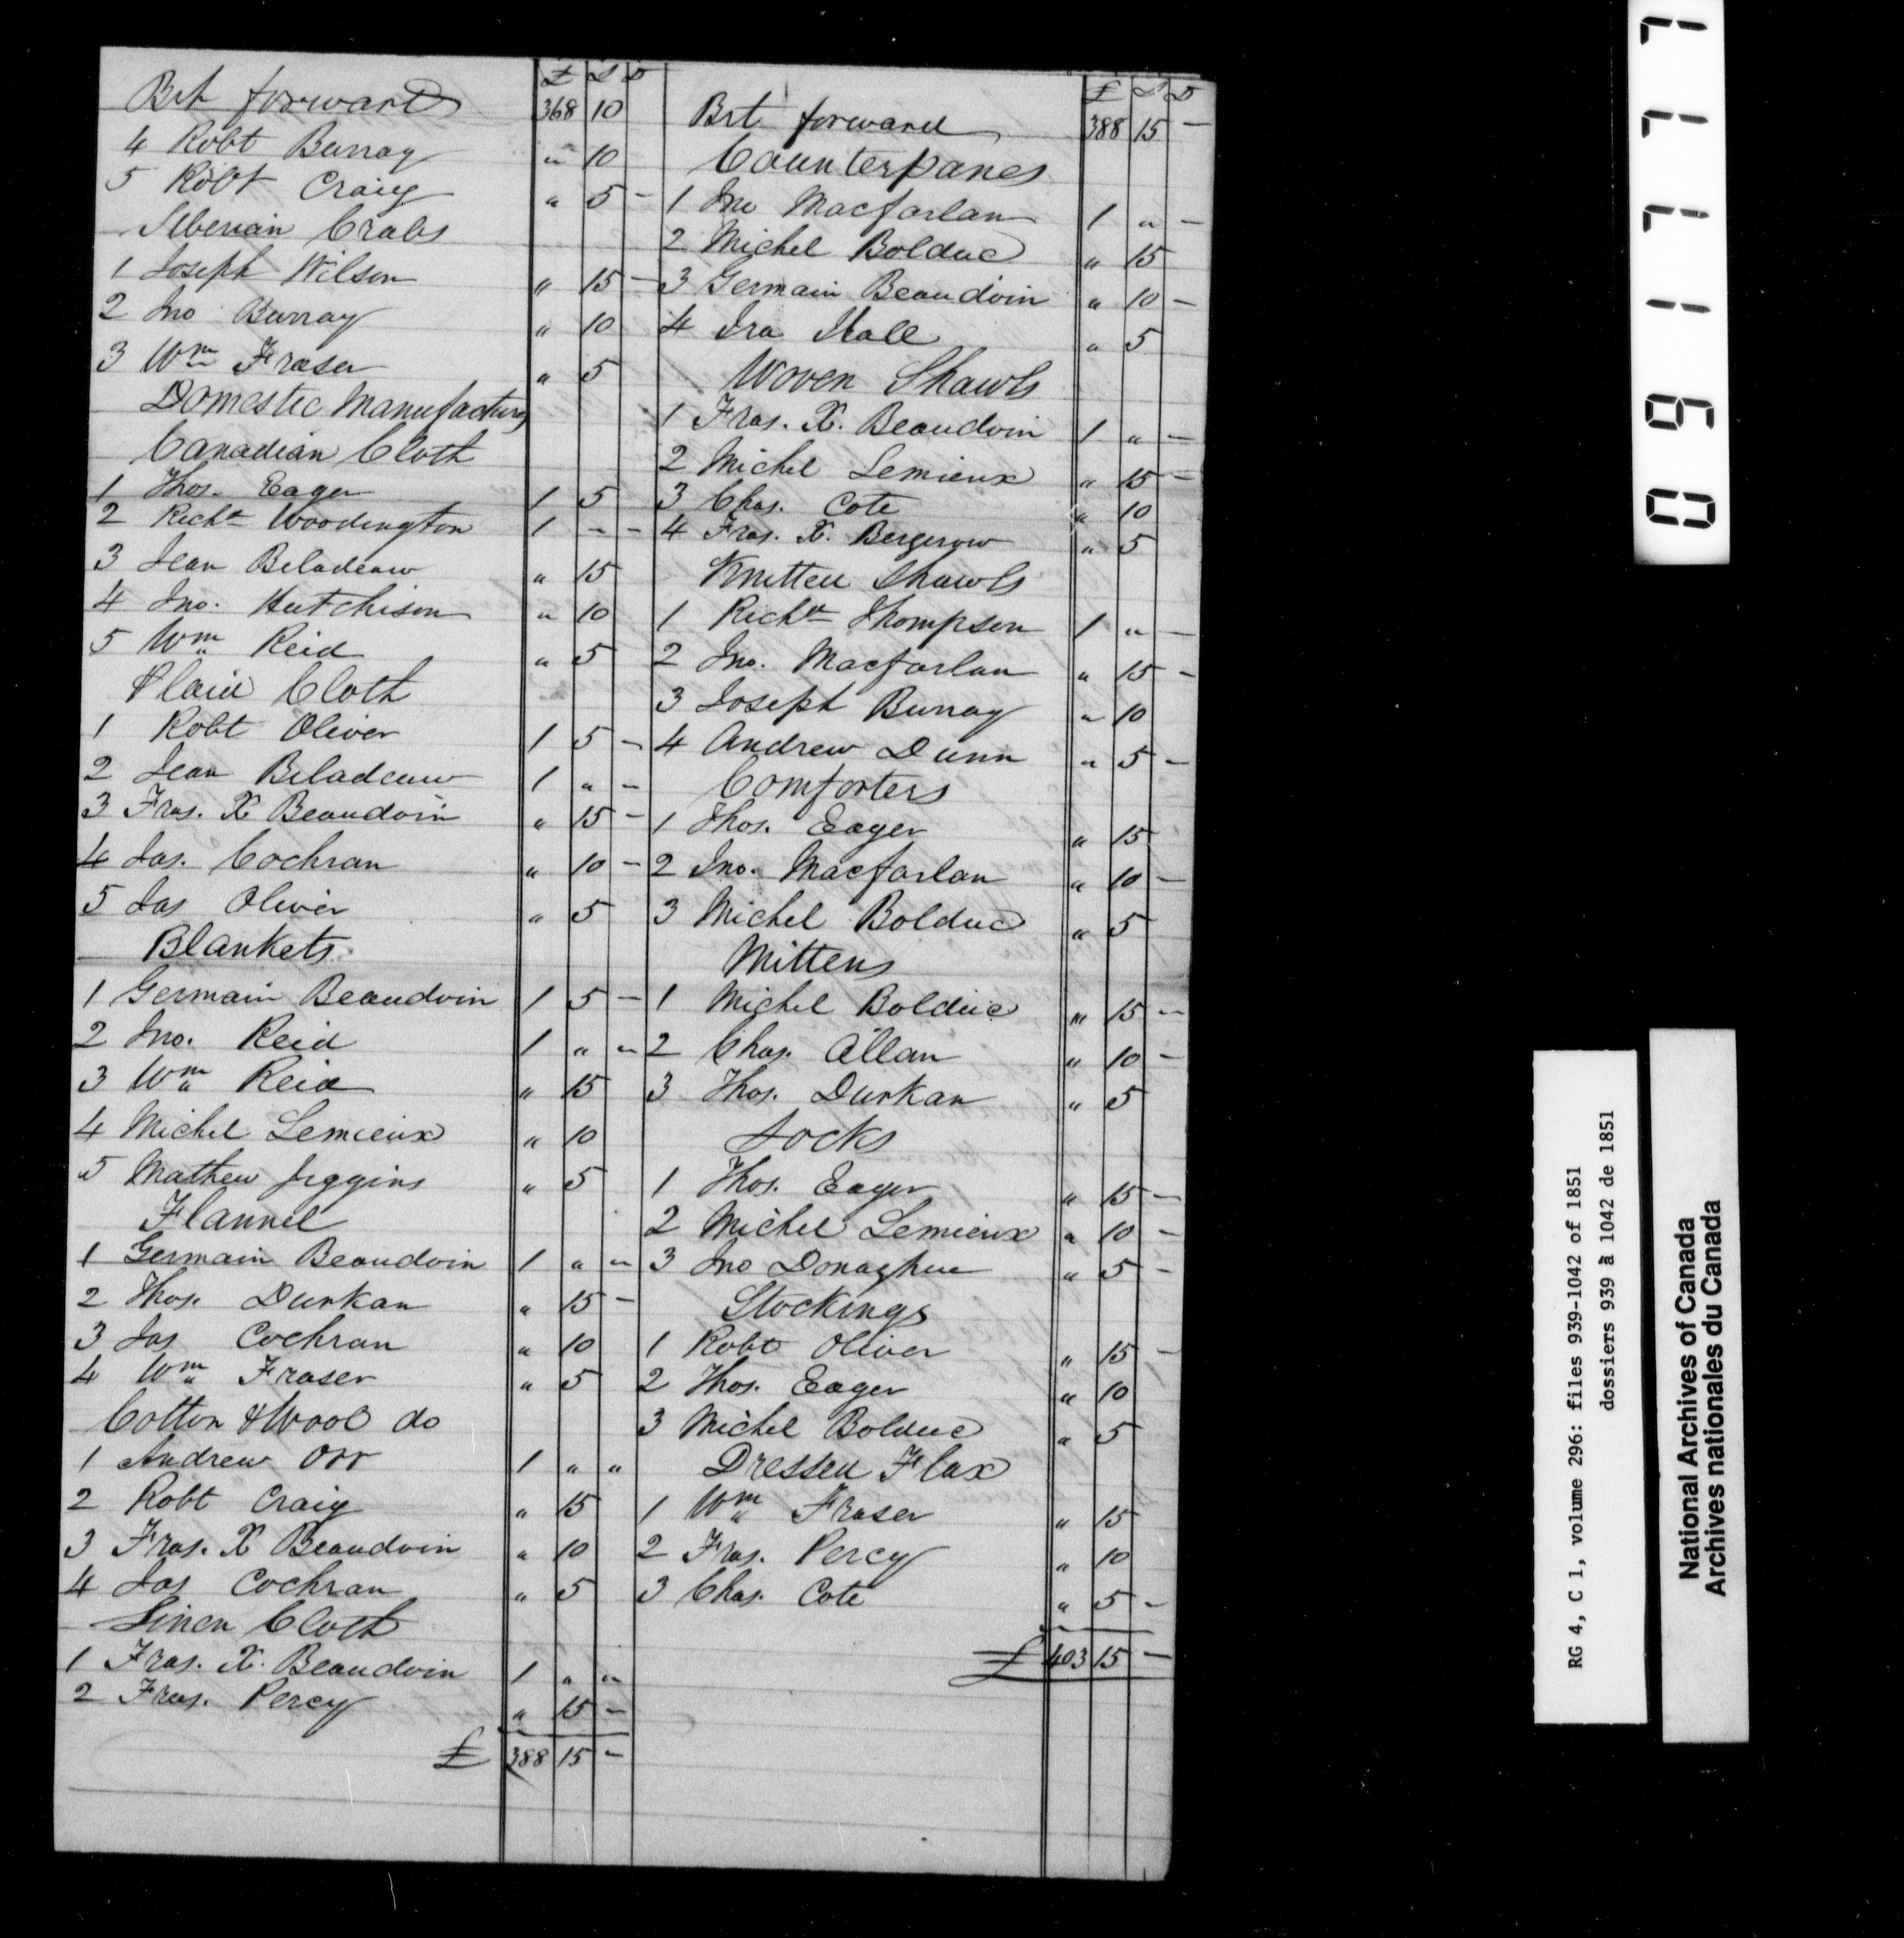 £ S D
Brt forward 368 10
4 Robt Burray " 10
5 Robt Craig " 5 -
Siberian Crabs
1 Joseph Wilson " 15 -
2 Jno Burray " 10
3 Wm Fraser " 5
Domestic Manufactures
Canadian Cloth
1 Thos. Eager 1 5
2 Richd Woodington 1 - -
3 Jean Beladeauw " 15
4 Jno. Hutchison " 10
5 Wm Reid " 5
Plaid Cloth
1 Robt Oliver 1 5 -
2 Jean Beladeauw 1 " -
3 Fras. X Beaudoin " 15 -
4 Jas. Cochran " 10 -
5 Jas Oliver " 5
Blankets
1 Germain Beaudoin 1 5 -
2 Jno. Reid 1 " "
3 Wm Reid " 15
4 Michel Lemieux " 10
5 Mathew Jiggins " 5
Flannel
1 Germain Beaudoin 1 " "
2 Thos. Durkan " 15 -
3 Jas Cochran " 10
4 Wm Fraser " 5
Cotton & Wool do
1 Andrew Orr 1 " "
2 Robt Craig " 15
3 Fras. X Beaudoin " 10
4 Jas Cochran " 5
Linen Cloth
1 Fras. X. Beaudoin 1 " "
2 Fras. Percy " 15 -
£ 388 15 -
£ S D
Brt forward 388 15 -
Counterpanes
1 Jno Macfarlan 1 " -
2 Michel Bolduc " 15
3 Germain Beaudoin " 10 -
4 Ira Hall " 5
Woven Shawls
1 Fras. X. Beaudoin 1 " -
2 Michel Lemieux " 15 -
3 Chas. Cote " 10
4 Fras. X. Bergerow " 5
Knitted Shawls
1 Richd Thompson 1 " -
2 Jno. Macfarlan " 15 -
3 Joseph Burray " 10
4 Andrew Dunn " 5 -
Comforters
1 Thos. Eager " 15
2 Jno. Macfarlan " 10 -
3 Michel Bolduc " 5
Mittens
1 Michel Bolduc " 15 -
2 Chas. Allan " 10 -
3 Thos. Durkan " 5
Socks
1 Thos. Eager " 15 -
2 Michel Lemieux " 10 -
3 Jno Donaghue " 5 -
Stockings
1 Robt Oliver " 15 -
2 Thos. Eager " 10
3 Michel Bolduc " 5
Dressed Flax
1 Wm Fraser " 15
2 Fras. Percy " 10
3 Chas. Cote " 5 -
£ 403 15 -
091777
RG 4, C 1, volume 296: files 939-1042 of 1851
dossiers 939 à 1042 de 1851
National Archives of Canada
Archives nationales du Canada